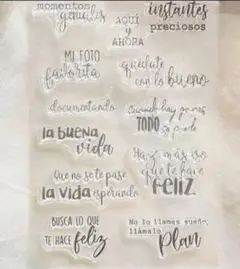 momentos
geniales
AQUÍ
y
AHORA
instantes
preciosos
MI FOTO
favorita
quédate
con lo bueno
documentando
la buena
vida
Cuando hay ganas
TODO se puede
Que no se te pase
LA VIDA esperando
Haz más eso
que te hace
FELIZ
BUSCA LO QUE
TE HACE feliz
No lo llames sueño,
llámalo
plan